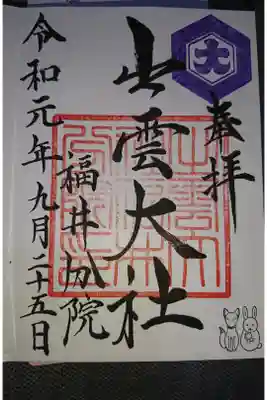 奉拝
出雲大社
福井分院
令和元年九月二十五日
大